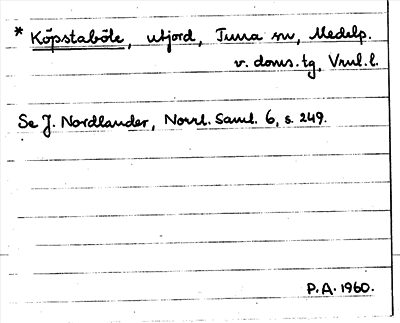 * Köpstaböle, utjord, Tuna sn, Medelp.
v. doms.tg, Vml.l.
Se J. Nordlander, Norrl. Saml. 6, s. 249.
P.A. 1960.